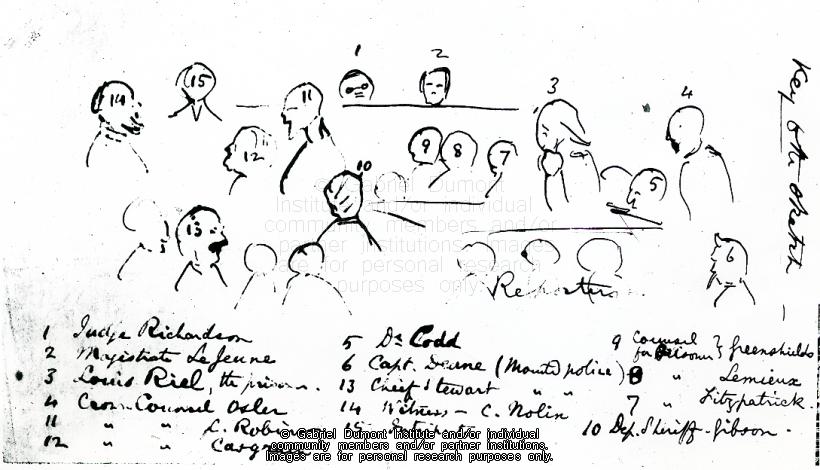 Key to the sketch
1
2
3
4
5
6
7
8
9
10
11
12
13
14
15
© Gabriel Dumont
Institute and/or individual
community members and/or
partner institutions. Images
are for personal research
purposes only.
Reporters
1 Judge Richardson
2 Magistrate LeJeune
3 Louis Riel, the prisoner.
4 Crown Counsel Osler
11 " " C. Robinson
12 " "
5 Dr Codd
6 Capt. Deane (Mounted police)
13 Chief Stewart " "
14 Witness - C. Nolin
15
9 Counsel for Prisoner } Greenshields
8 " Lemieux
7 " Fitzpatrick.
10 Dep. Sheriff - Gibson -
© Gabriel Dumont Institute and/or individual
community members and/or partner institutions.
Images are for personal research purposes only.